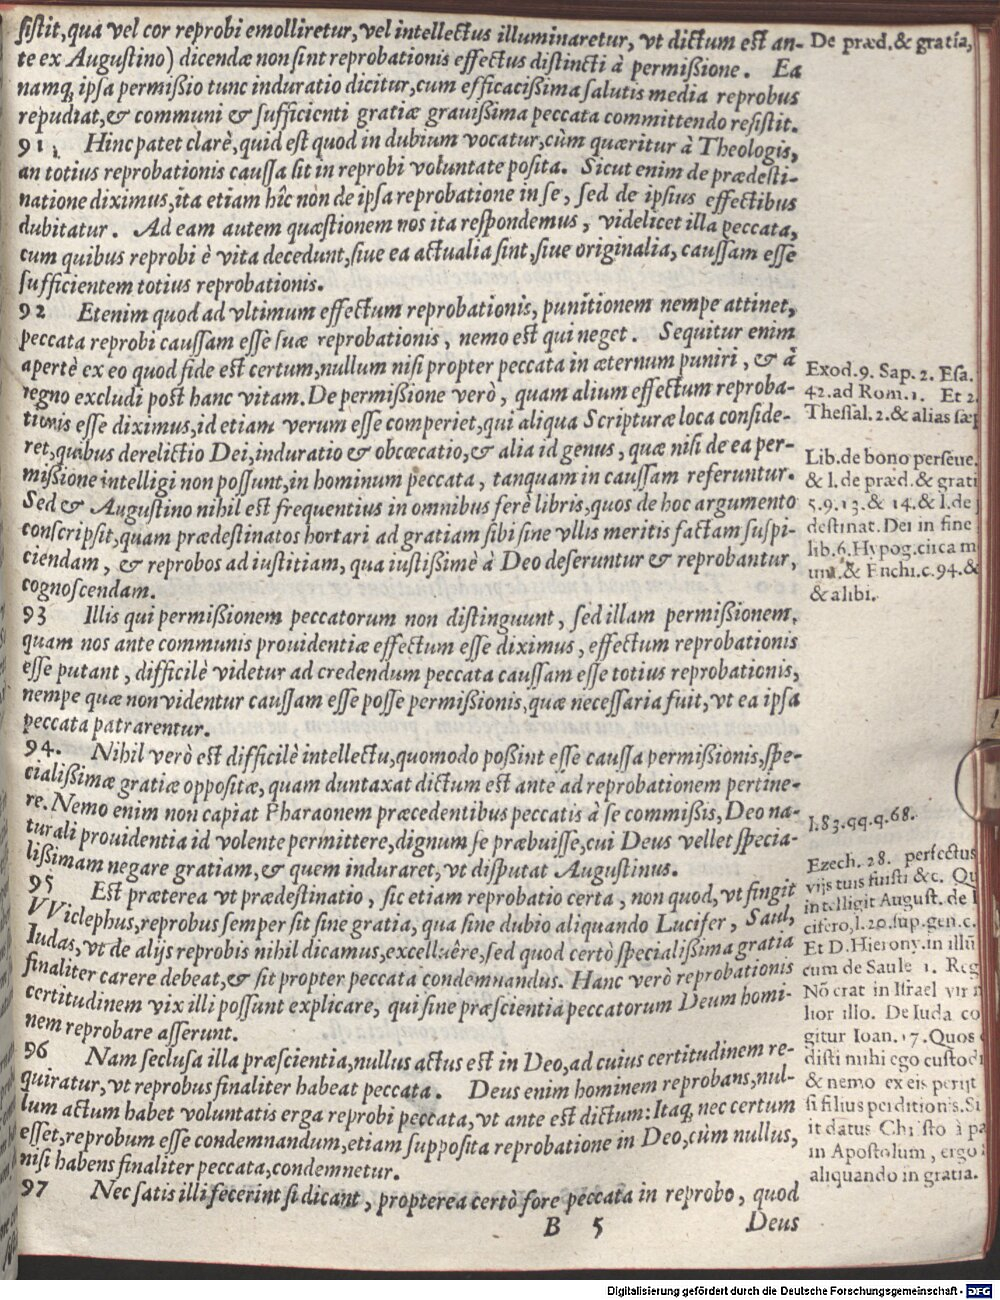 sistit, qua vel cor reprobi emolliretur, vel intellectus illuminaretur, vt dictum est an-
te ex Augustino) dicendæ non sint reprobationis effectus distincti à permißione. Ea
namq; ipsa permißio tunc induratio dicitur, cum efficacißima salutis media reprobus
repudiat, & communi & sufficienti gratiæ grauißima peccata committendo resistit.
91. Hinc patet clarè, quid est quod in dubium vocatur, cùm quæritur à Theologis,
an totius reprobationis caussa sit in reprobi voluntate posita. Sicut enim de prædesti-
natione diximus, ita etiam hîc non de ipsa reprobatione in se, sed de ipsius effectibus
dubitatur. Ad eam autem quæstionem nos ita respondemus, videlicet illa peccata,
cum quibus reprobi è vita decedunt, siue ea actualia sint, siue originalia, caussam esse
sufficientem totius reprobationis.
92 Etenim quod ad vltimum effectum reprobationis, punitionem nempe attinet,
peccata reprobi caussam esse suæ reprobationis, nemo est qui neget. Sequitur enim
apertè ex eo quod fide est certum, nullum nisi propter peccata in æternum puniri, & à
regno excludi post hanc vitam. De permißione verò, quam alium effectum reproba-
tionis esse diximus, id etiam verum esse comperiet, qui aliqua Scripturæ loca conside-
ret, quibus derelictio Dei, induratio & obcæcatio, & alia id genus, quæ nisi de ea per-
mißione intelligi non possunt, in hominum peccata, tanquam in caussam referuntur.
Sed & Augustino nihil est frequentius in omnibus ferè libris, quos de hoc argumento
conscripsit, quam prædestinatos hortari ad gratiam sibi sine vllis meritis factam suspi-
ciendam, & reprobos ad iustitiam, qua iustißimè à Deo deseruntur & reprobantur,
cognoscendam.
93 Illis qui permißionem peccatorum non distinguunt, sed illam permißionem,
quam nos ante communis prouidentiæ effectum esse diximus, effectum reprobationis
esse putant, difficilè videtur ad credendum peccata caussam esse totius reprobationis,
nempe quæ non videntur caussam esse posse permißionis, quæ necessaria fuit, vt ea ipsa
peccata patrarentur.
94. Nihil verò est difficilè intellectu, quomodo poßint esse caussa permißionis, spe-
cialißimæ gratiæ oppositæ, quam duntaxat dictum est ante ad reprobationem pertine-
re. Nemo enim non capiat Pharaonem præcedentibus peccatis à se commißis, Deo na-
turali prouidentia id volente permittere, dignum se præbuisse, cui Deus vellet specia-
lißimam negare gratiam, & quem induraret, vt disputat Augustinus.
95 Est præterea vt prædestinatio, sic etiam reprobatio certa, non quod, vt fingit
VViclephus, reprobus semper sit sine gratia, qua sine dubio aliquando Lucifer, Saul,
Iudas, vt de alijs reprobis nihil dicamus, excelluêre, sed quod certò specialißima gratia
finaliter carere debeat, & sit propter peccata condemnandus. Hanc verò reprobationis
certitudinem vix illi possunt explicare, qui sine præscientia peccatorum Deum homi-
nem reprobare asserunt.
96 Nam seclusa illa præscientia, nullus actus est in Deo, ad cuius certitudinem re-
quiratur, vt reprobus finaliter habeat peccata. Deus enim hominem reprobans, nul-
lum actum habet voluntatis erga reprobi peccata, vt ante est dictum: Itaq; nec certum
esset, reprobum esse condemnandum, etiam supposita reprobatione in Deo, cùm nullus,
nisi habens finaliter peccata, condemnetur.
97 Nec satis illi fecerint si dicant, propterea certò fore peccata in reprobo, quod
B 5 Deus
De præd. & gratia,
Exod. 9. Sap. 2. Esa.
42. ad Rom. 1. Et 2.
Thessal. 2. & alias sæp
Lib. de bono perseue.
& l. de præd. & grati
5. 9. 13. & 14. & l. de
destinat. Dei in fine
lib. 6. Hypog. circa m
& Enchi. c. 94. &
& alibi.
l. 83. qq. q. 68.
Ezech. 28. perfectus
vijs tuis fuisti &c. Qu
intelligit August. de l
cifero, l. 20. sup. gen. c.
Et D. Hierony. in illũ
cum de Saule 1. Reg
Nõ erat in Israel vir m
lior illo. De Iuda co
gitur Ioan. 17. Quos
disti mihi ego custodi
& nemo ex eis perijt
si filius perditionis. Si
it datus Christo à pa
in Apostolum, ergo
aliquando in gratia.
Digitalisierung gefördert durch die Deutsche Forschungsgemeinschaft - DFG